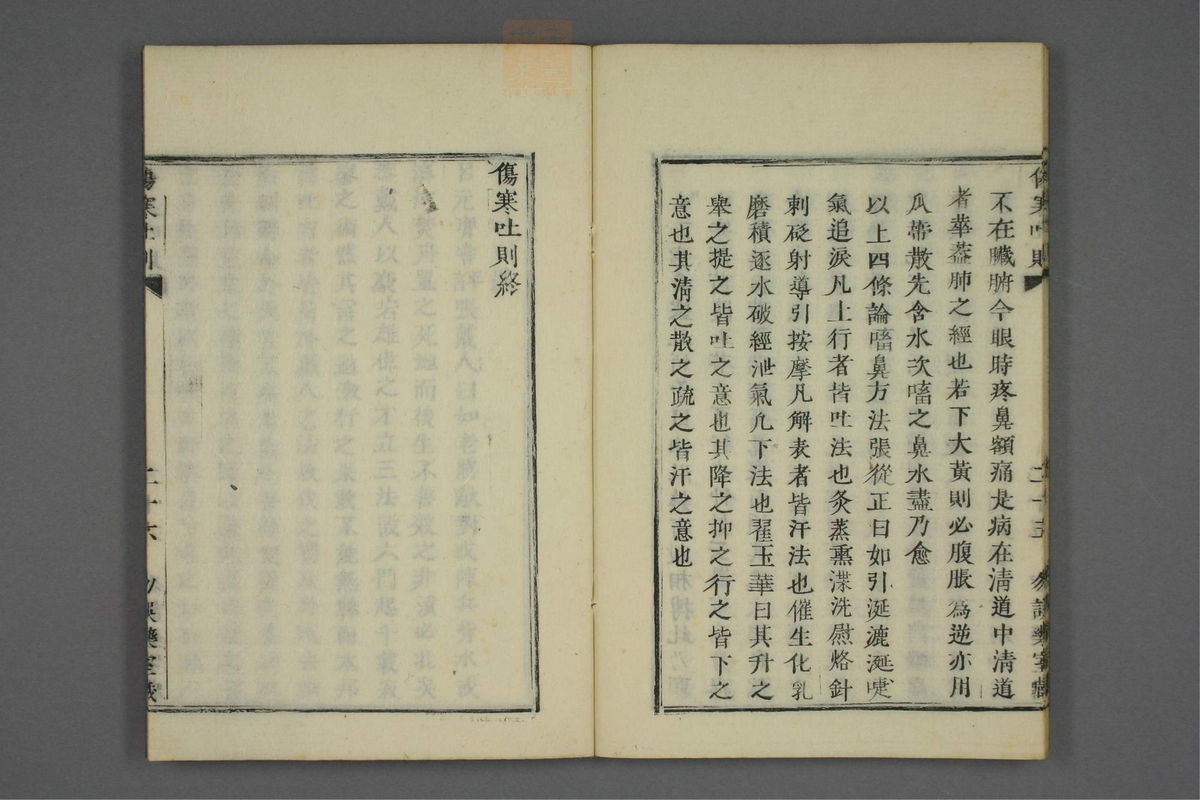 不在臟腑今眼時疼鼻額痛是病在清道中清道
者華葢肺之經也若下大黃則必腹脹為逆亦用
瓜蒂散先含水次㗜之鼻水盡乃愈
以上四條論㗜鼻方法張從正曰如引涎漉涎嚏
氣追淚凡上行者皆吐法也灸蒸熏渫洗慰烙針
刺砭射導引按摩凡解表者皆汗法也催生化乳
磨積逐水破經泄氣凡下法也翟玉華曰其升之
舉之提之皆吐之意也其降之抑之行之皆下之
意也其清之散之疏之皆汗之意也
傷寒吐則終
傷寒吐則
二十六